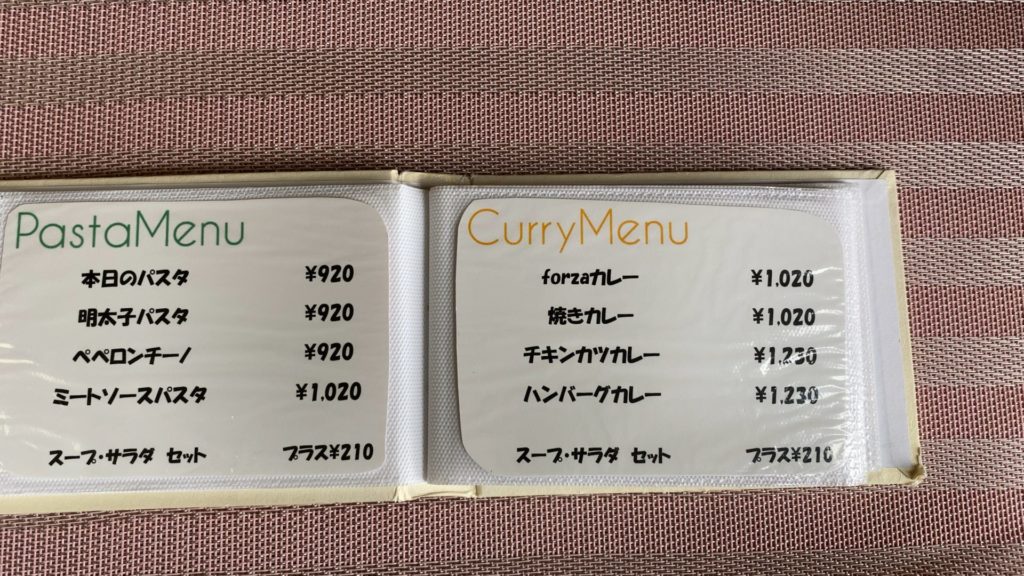 PastaMenu
本日のパスタ ¥920
明太子パスタ ¥920
ペペロンチーノ ¥920
ミートソースパスタ ¥1,020
スープ・サラダ セット プラス¥210
CurryMenu
forzaカレー ¥1,020
焼きカレー ¥1,020
チキンカツカレー ¥1,230
ハンバーグカレー ¥1,230
スープ・サラダ セット プラス¥210